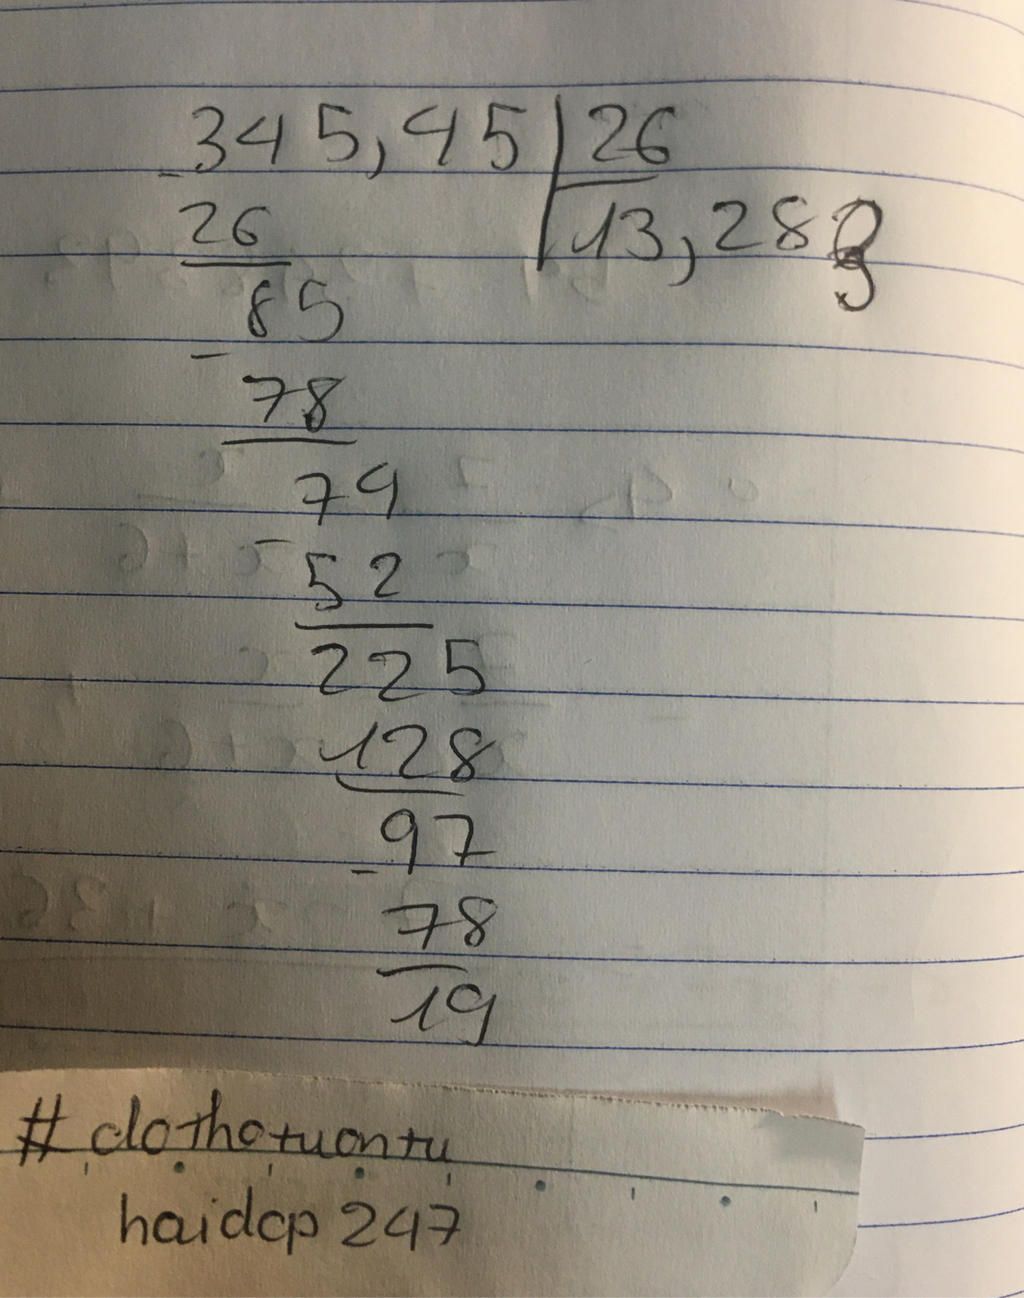 345,45 26
- 26 13,283
85
- 78
74
- 52
225
128
97
- 78
19
#dothotuantu
haidcp247